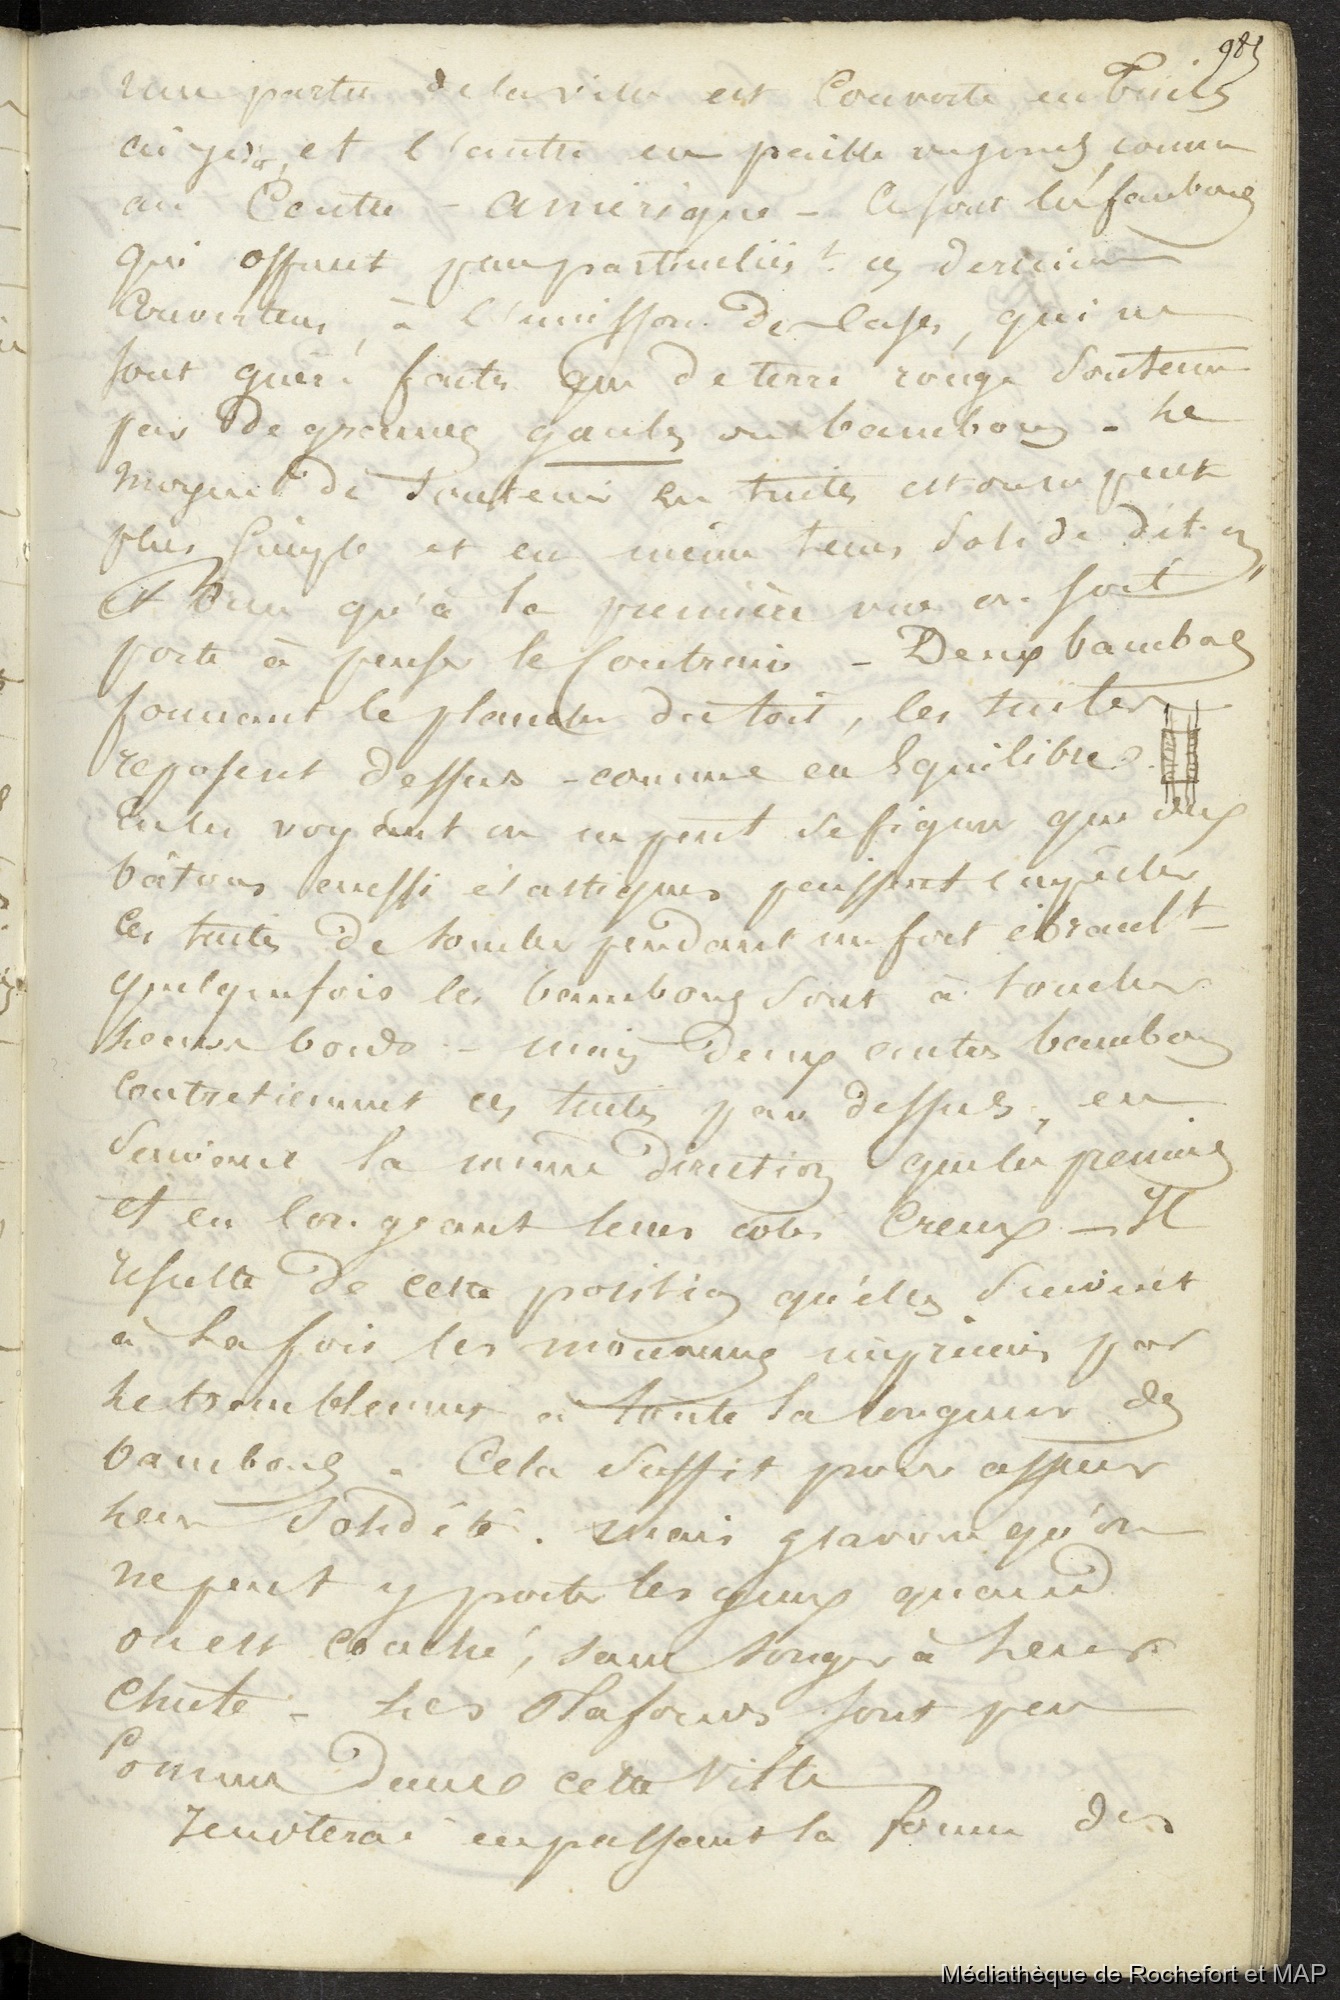 985
une partie de la ville est Couverte en tuiles
et l'autre en paille comme
au Centre - Amérique - Ce sont les faubourgs
qui offrent particulièrt ces dernières
Couvertures, à l'unisson de Cases, qui ne
sont guère faites que de terre rouge soutenue
par de grandes gaules ou bambous - Le
moyen de soutenir les tuiles est on ne peut
plus simple et en même tems solide dit-on
Bien qu'à la première vue on soit
porté à penser le Contraire - Deux bambous
formant le plancher du toit, les tuiles
reposent dessus - comme en Equilibre.
En les voyant on ne peut se figurer que deux
bâtons aussi élastiques puissent empêcher
Ces tuiles de tomber pendant un fort ébranlt -
quelquefois les bambous sont à toucher
leurs bords - mais deux autres bambous
contretiennent ces tuiles par dessus, en
Suivant la même direction que les premiers
et en longeant leurs côtés Creux - Il
résulte de cette position qu'elles suivent
à la fois les mouvemens imprimés par
le tremblement à toute la longueur des
bambous. Cela suffit pour assurer
leur solidité. Mais qu'on
ne peut y porter les yeux quand
on est couché, sans songer à leur
Chute - Les Plafonds sont peu
Communs dans cette Ville
Je noterai en passant la forme des
Médiathèque de Rochefort et MAP